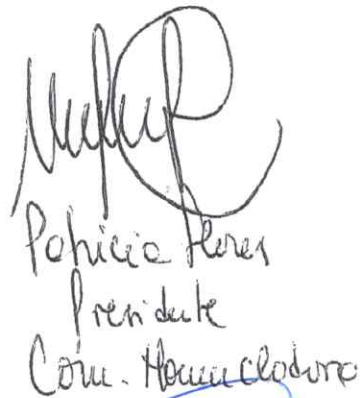 Patricia Flores
Presidente
Com. Nomencladora